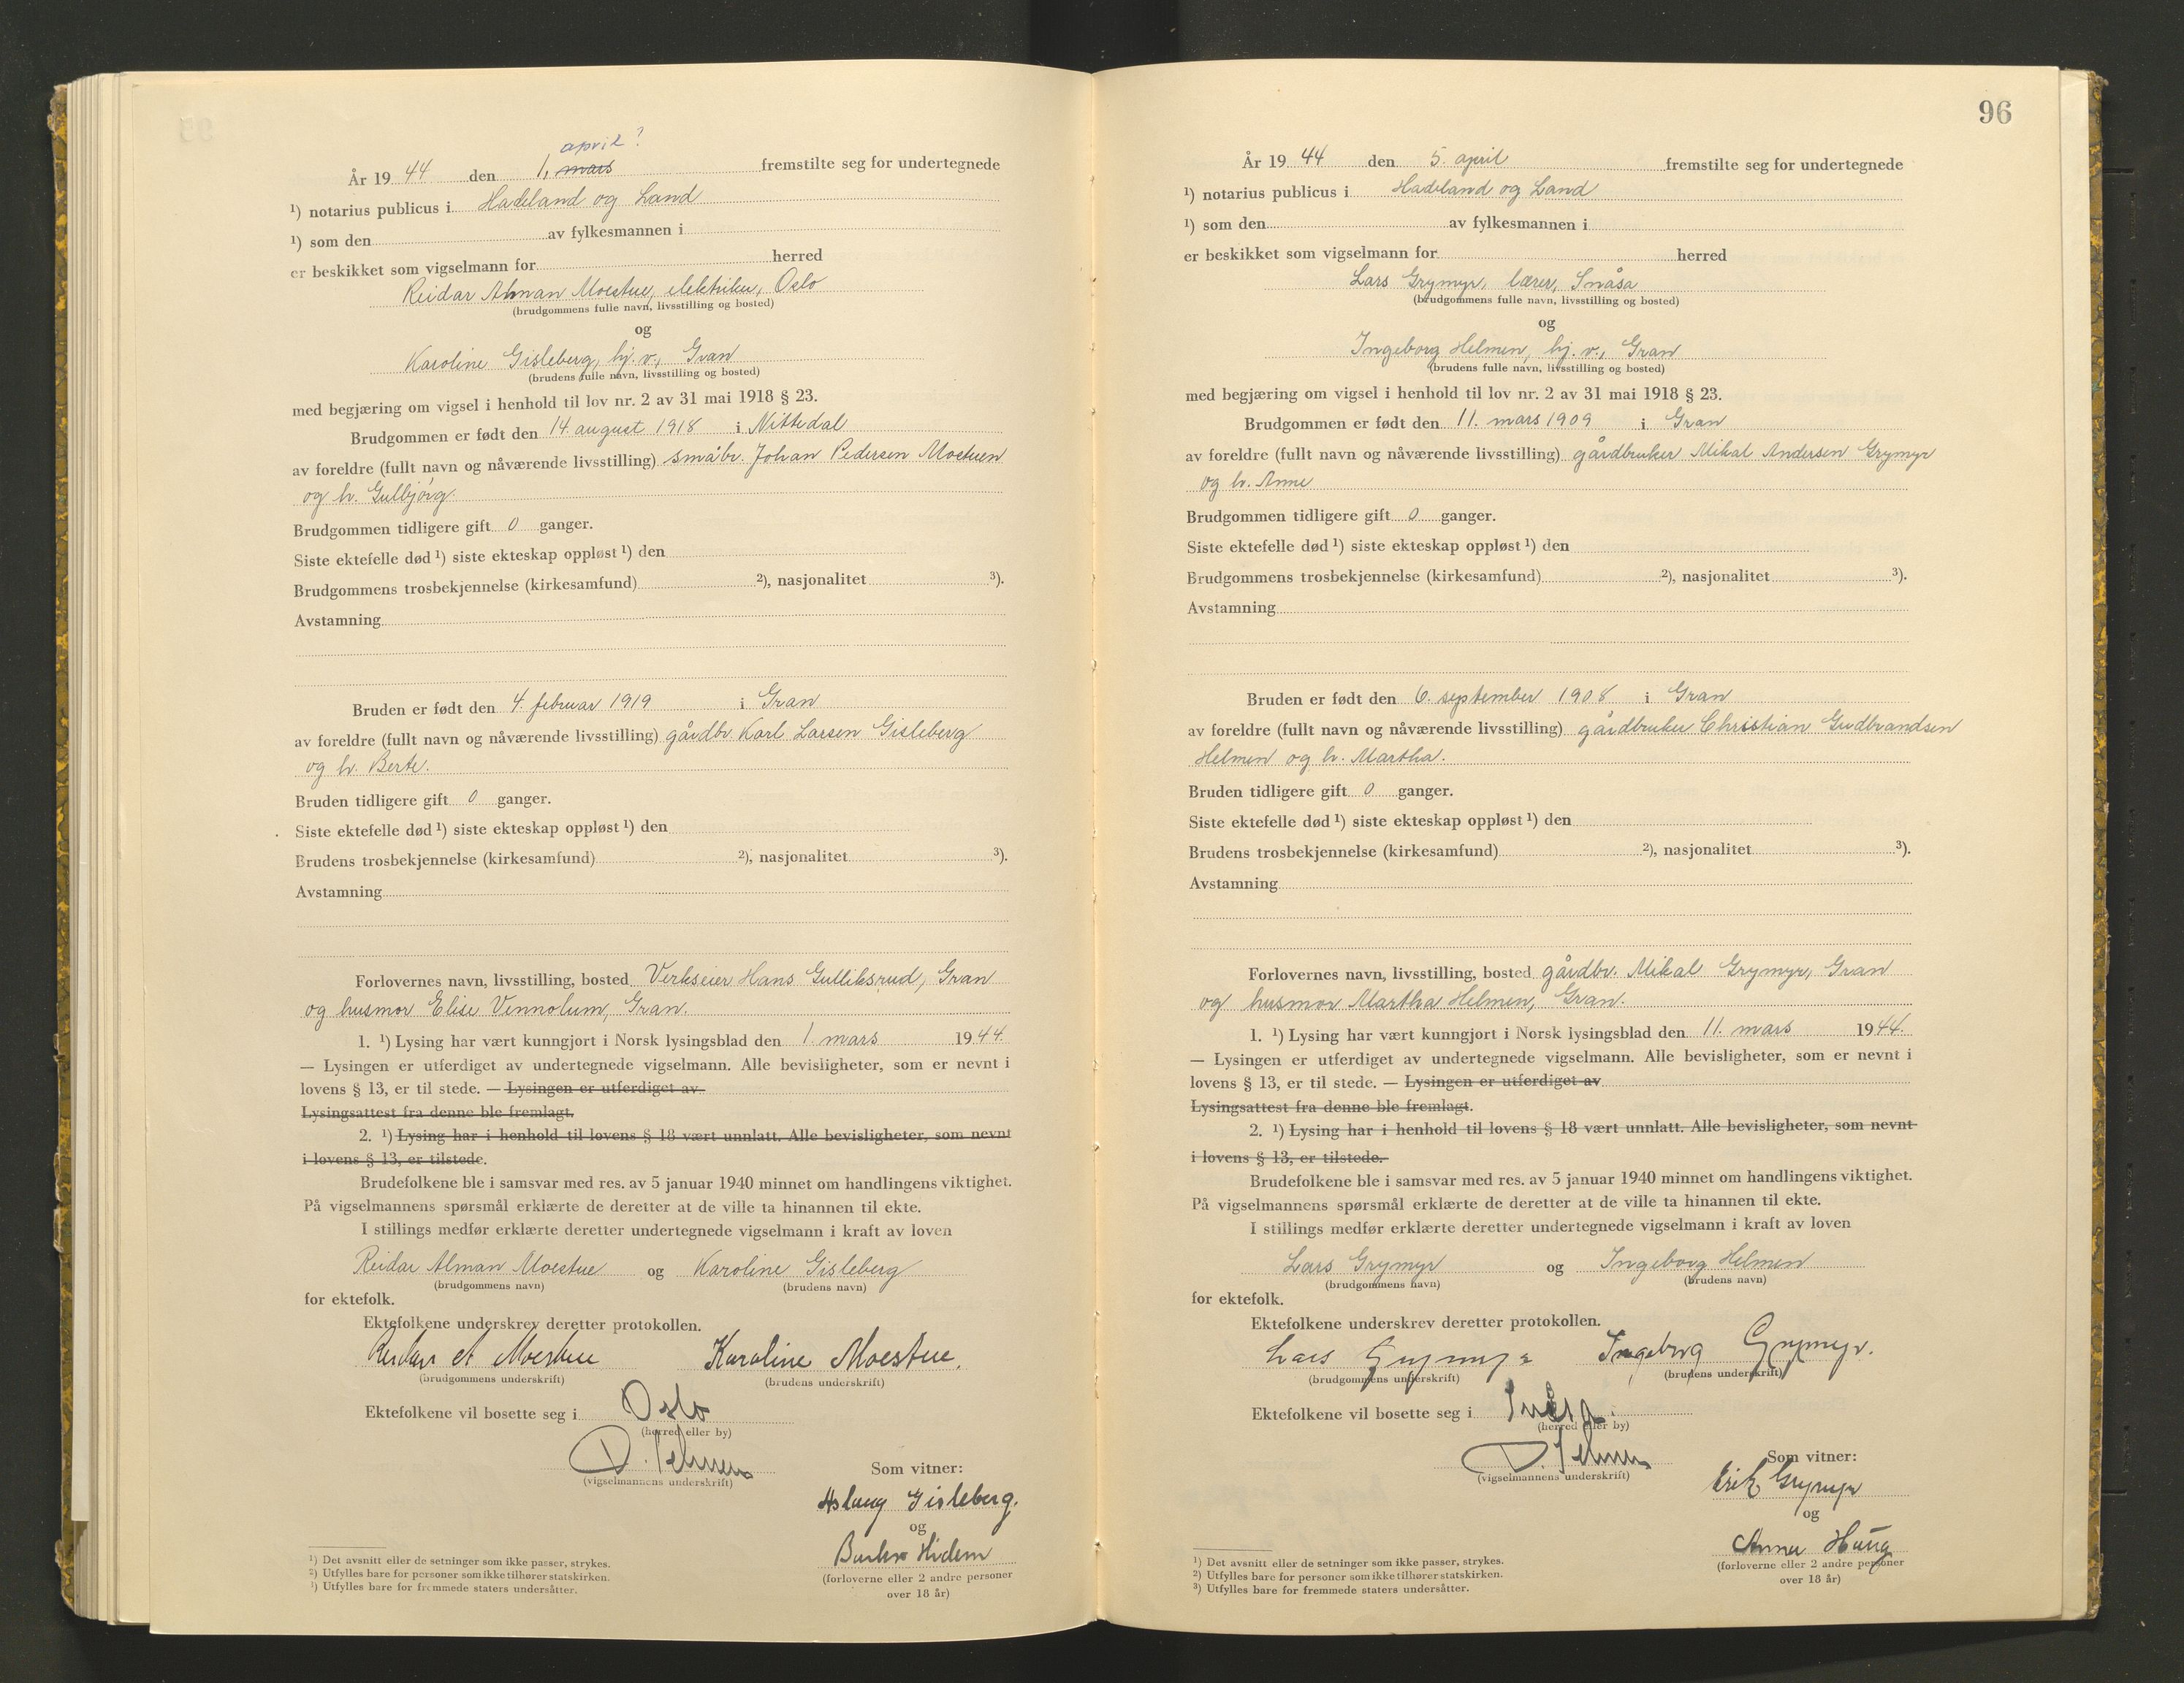 april?
År 19 44 den 1. mars fremstilte seg for undertegnede
¹) notarius publicus i Hadeland og Land
¹) som den av fylkesmannen i
er beskikket som vigselmann for herred
Reidar Alman Moestue, elektriker, Oslo
(brudgommens fulle navn, livsstilling og bosted)
og
Karoline Gisleberg, hj. v., Gran
(brudens fulle navn, livsstilling og bosted)
med begjæring om vigsel i henhold til lov nr. 2 av 31 mai 1918 § 23.
Brudgommen er født den 14. august 1918 i Nittedal
av foreldre (fullt navn og nåværende livsstilling) småbr. Johan Pedersen Moestuen
og h. Gulbjørg.
Brudgommen tidligere gift 0 ganger.
Siste ektefelle død ¹) siste ekteskap oppløst ¹) den
Brudgommens trosbekjennelse (kirkesamfund) ²), nasjonalitet ³).
Avstamning
Bruden er født den 4. februar 1919 i Gran
av foreldre (fullt navn og nåværende livsstilling) gårdbr. Karl Larsen Gisleberg
og h. Berte.
Bruden tidligere gift 0 ganger.
Siste ektefelle død ¹) siste ekteskap oppløst ¹) den
Brudens trosbekjennelse (kirkesamfund) ²), nasjonalitet ³).
Avstamning
Forlovernes navn, livsstilling, bosted Verkseier Hans Gulliksrud, Gran
og husmor Elise Vennolum, Gran.
1. ¹) Lysing har vært kunngjort i Norsk lysingsblad den 1. mars 19 44.
— Lysingen er utferdiget av undertegnede vigselmann. Alle bevisligheter, som er nevnt i
lovens § 13, er til stede. — Lysingen er utferdiget av
Lysingsattest fra denne ble fremlagt.
2. ¹) Lysing har i henhold til lovens § 18 vært unnlatt. Alle bevisligheter, som nevnt
i lovens § 13, er tilstede.
Brudefolkene ble i samsvar med res. av 5 januar 1940 minnet om handlingens viktighet.
På vigselmannens spørsmål erklærte de deretter at de ville ta hinannen til ekte.
I stillings medfør erklærte deretter undertegnede vigselmann i kraft av loven
Reidar Alman Moestue og Karoline Gisleberg
(brudgommens navn) (brudens navn)
for ektefolk.
Ektefolkene underskrev deretter protokollen.
Reidar A Moestue Karoline Moestue.
(brudgommens underskrift) (brudens underskrift)
Ektefolkene vil bosette seg i Oslo
(herred eller by)
(vigselmannens underskrift)
Som vitner:
Aslaug Gisleberg.
og
Hidem
(forloverne eller 2 andre personer
over 18 år)
¹) Det avsnitt eller de setninger som ikke passer, strykes.
²) Utfylles bare for personer som ikke tilhører statskirken.
³) Utfylles bare for fremmede staters undersåtter.
96
År 19 44 den 5. april fremstilte seg for undertegnede
¹) notarius publicus i Hadeland og Land
¹) som den av fylkesmannen i
er beskikket som vigselmann for herred
Lars Grymyr, lærer, Snåsa
(brudgommens fulle navn, livsstilling og bosted)
og
Ingeborg Helmen, hj. v., Gran
(brudens fulle navn, livsstilling og bosted)
med begjæring om vigsel i henhold til lov nr. 2 av 31 mai 1918 § 23.
Brudgommen er født den 11. mars 1909 i Gran
av foreldre (fullt navn og nåværende livsstilling) gårdbruker Mikal Andersen Grymyr
og h. Anne
Brudgommen tidligere gift 0 ganger.
Siste ektefelle død ¹) siste ekteskap oppløst ¹) den
Brudgommens trosbekjennelse (kirkesamfund) ²), nasjonalitet ³).
Avstamning
Bruden er født den 6. september 1908 i Gran
av foreldre (fullt navn og nåværende livsstilling) gårdbruker Christian Gudbrandsen
Helmen og h. Martha.
Bruden tidligere gift 0 ganger.
Siste ektefelle død ¹) siste ekteskap oppløst ¹) den
Brudens trosbekjennelse (kirkesamfund) ²), nasjonalitet ³).
Avstamning
Forlovernes navn, livsstilling, bosted gårdbr. Mikal Grymyr, Gran
og husmor Martha Helmen, Gran.
1. ¹) Lysing har vært kunngjort i Norsk lysingsblad den 11. mars 19 44.
— Lysingen er utferdiget av undertegnede vigselmann. Alle bevisligheter, som er nevnt i
lovens § 13, er til stede. — Lysingen er utferdiget av
Lysingsattest fra denne ble fremlagt.
2. ¹) Lysing har i henhold til lovens § 18 vært unnlatt. Alle bevisligheter, som nevnt
i lovens § 13, er tilstede.
Brudefolkene ble i samsvar med res. av 5 januar 1940 minnet om handlingens viktighet.
På vigselmannens spørsmål erklærte de deretter at de ville ta hinannen til ekte.
I stillings medfør erklærte deretter undertegnede vigselmann i kraft av loven
Lars Grymyr og Ingeborg Helmen
(brudgommens navn) (brudens navn)
for ektefolk.
Ektefolkene underskrev deretter protokollen.
Lars Grymyr Ingeborg Grymyr.
(brudgommens underskrift) (brudens underskrift)
Ektefolkene vil bosette seg i Snåsa.
(herred eller by)
(vigselmannens underskrift)
Som vitner:
Erik Grymyr
og
Anna Haug
(forloverne eller 2 andre personer
over 18 år)
¹) Det avsnitt eller de setninger som ikke passer, strykes.
²) Utfylles bare for personer som ikke tilhører statskirken.
³) Utfylles bare for fremmede staters undersåtter.